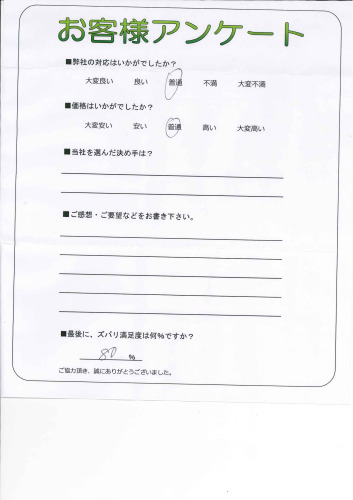 お客様アンケート
■弊社の対応はいかがでしたか？
大変良い 良い 普通 不満 大変不満
■価格はいかがでしたか？
大変安い 安い 普通 高い 大変高い
■当社を選んだ決め手は？
■ご感想・ご要望などをお書き下さい。
■最後に、ズバリ満足度は何%ですか？
80 %
ご協力頂き、誠にありがとうございました。